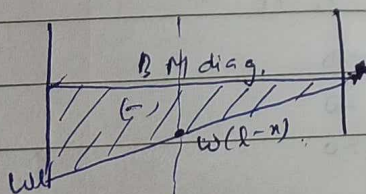 B M diag.
(-)
W(l-x)
Wl